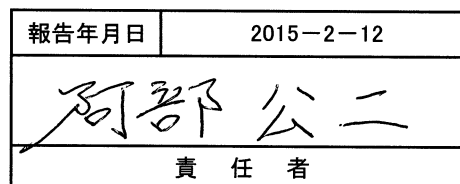 報告年月日 2015-2-12
阿部 公二
責任者